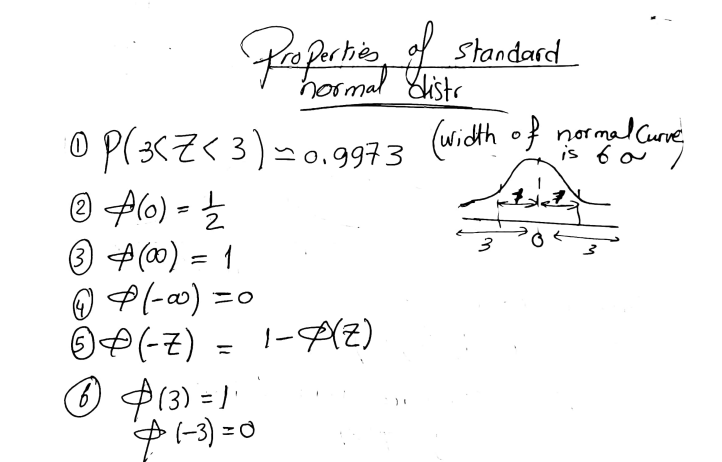 Properties of standard
normal distr
① P(3<Z<3) ≃ 0.9973 (width of normal Curve
is 6σ)
② Φ(0) = 1/2
③ Φ(∞) = 1
④ Φ(-∞) = 0
⑤ Φ(-Z) = 1-Φ(Z)
⑥ Φ(3) = 1
Φ(-3) = 0
3 0 3